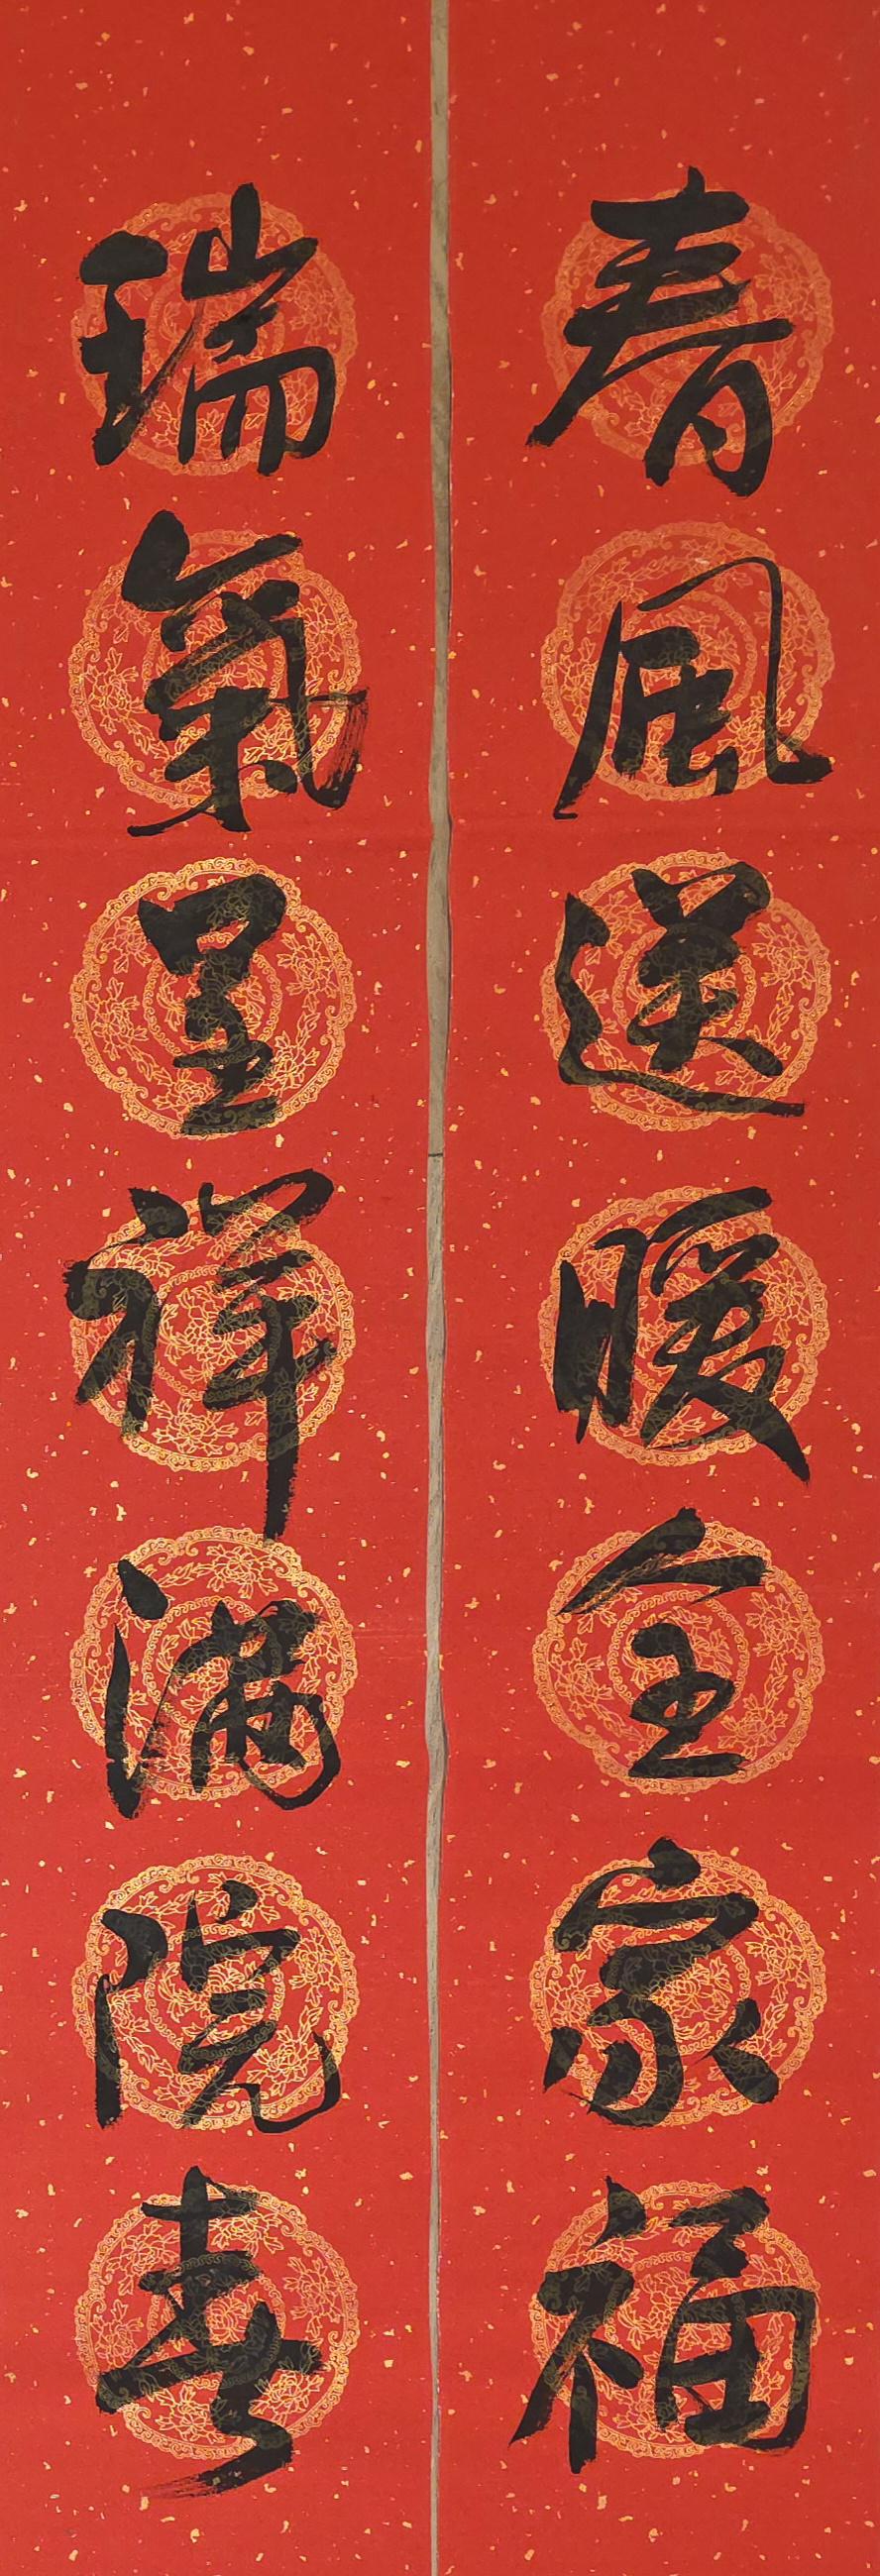 春風送暖全家福
瑞氣呈祥滿院春